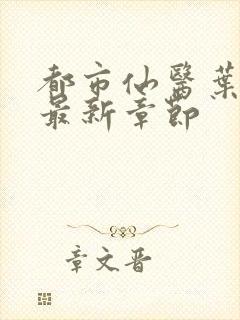 都市仙醫葉
最新章節
章文晋